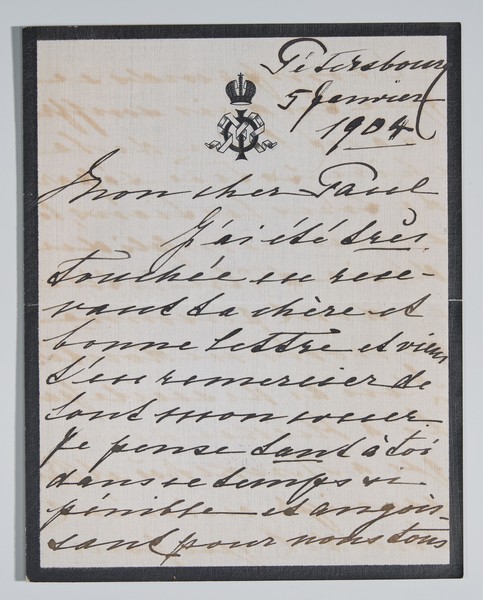 Pétersbourg
5 Janvier
1904
Mon cher Paul
J'ai été très
touchée en rece-
vant ta chère et
bonne lettre et viens
t'en remercier de
tout mon cœur.
Je pense tant à toi
dans ce temps si
pénible et angois-
sant pour nous tous